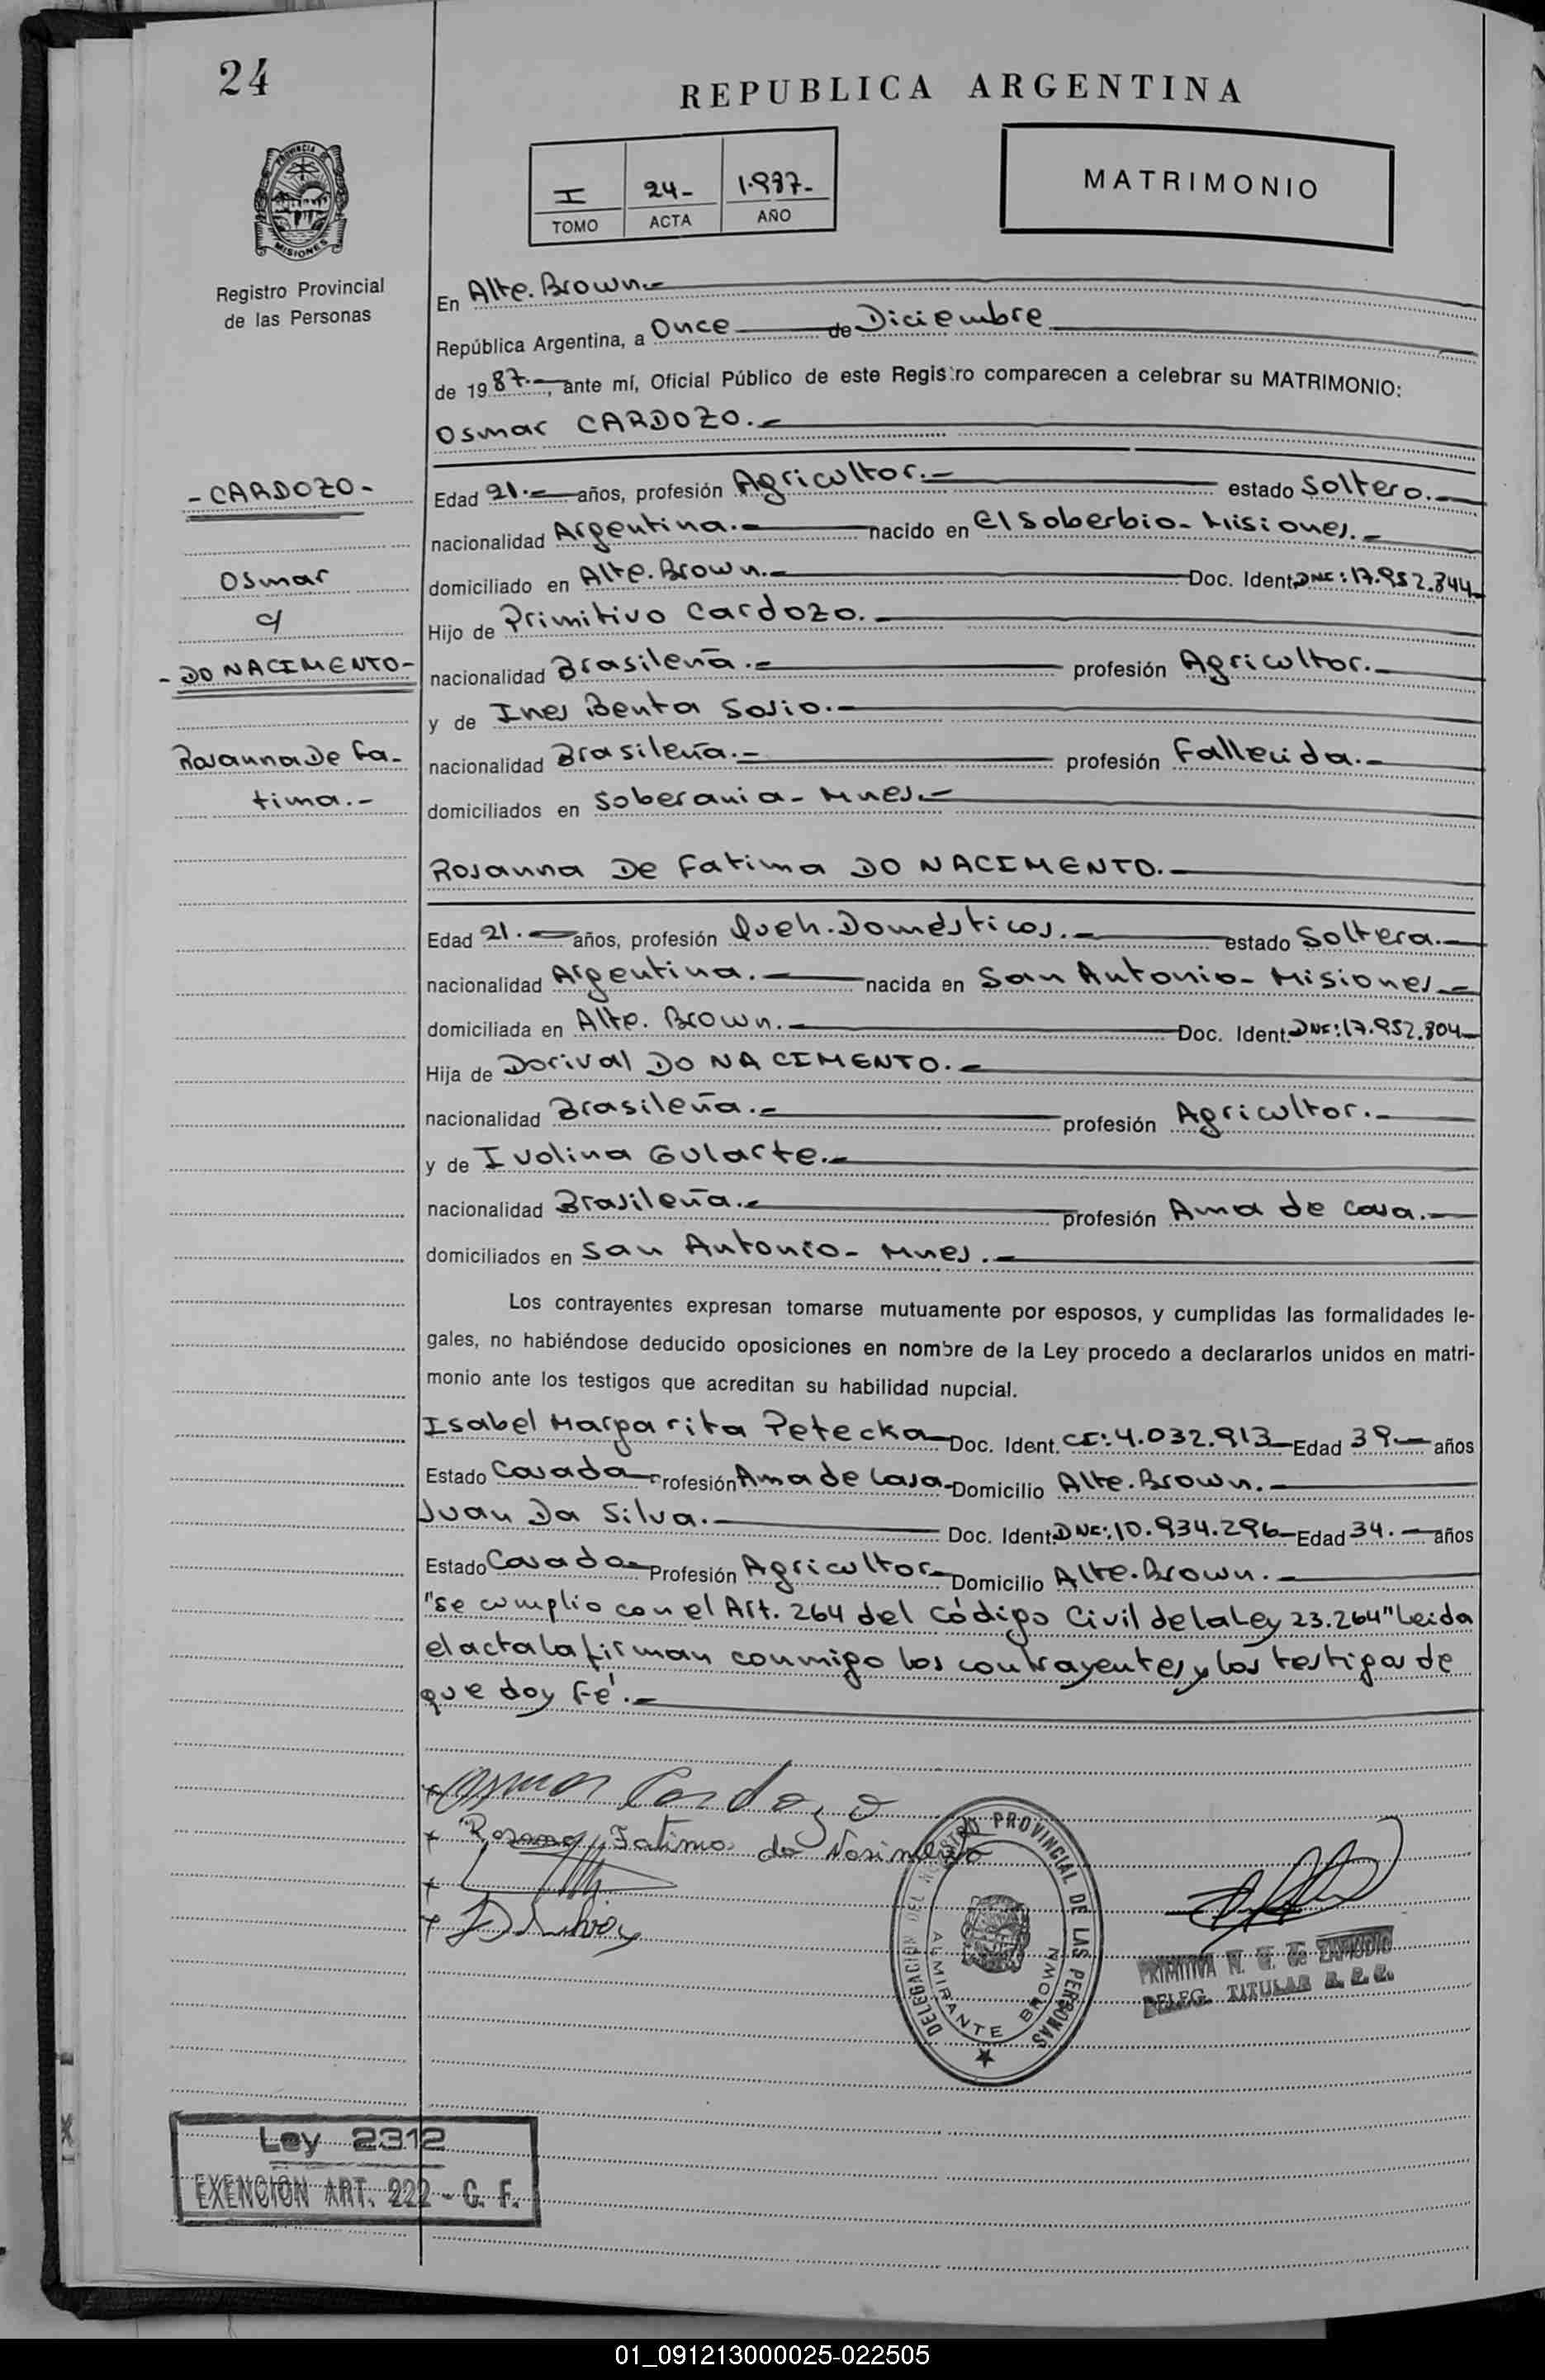 24
REPUBLICA ARGENTINA
PROVINCIA
MISIONES
Registro Provincial
de las Personas
I 24- 1.987-
TOMO ACTA AÑO
MATRIMONIO
En Alte. Brown.-
República Argentina, a Once de Diciembre
de 1987.-, ante mí, Oficial Público de este Registro comparecen a celebrar su MATRIMONIO:
Osmar CARDOZO.-
- CARDOZO -
Osmar
c/
- DO NACIMENTO -
Rosanna De Fa-
tima.-
Edad 21.- años, profesión Agricultor.- estado Soltero.-
nacionalidad Argentina.- nacido en El Soberbio- Misiones.-
domiciliado en Alte. Brown.- Doc. Ident. DNI: 17.952.844-
Hijo de Primitivo Cardozo.-
nacionalidad Brasileña.- profesión Agricultor.-
y de Ines Benta Sosio.-
nacionalidad Brasileña.- profesión Fallecida.-
domiciliados en Soberania- Mnes.-
Rosanna De Fatima DO NACIMENTO.-
Edad 21.- años, profesión Queh. Domésticos.- estado Soltera.-
nacionalidad Argentina.- nacida en San Antonio- Misiones-
domiciliada en Alte. Brown.- Doc. Ident. DNI: 17.952.804-
Hija de Dorival DO NACIMENTO.-
nacionalidad Brasileña.- profesión Agricultor.-
y de Ivolina Gularte.-
nacionalidad Brasileña.- profesión Ama de casa.-
domiciliados en San Antonio- Mnes.-
Los contrayentes expresan tomarse mutuamente por esposos, y cumplidas las formalidades le-
gales, no habiéndose deducido oposiciones en nombre de la Ley procedo a declararlos unidos en matri-
monio ante los testigos que acreditan su habilidad nupcial.
Isabel Margarita Petecka- Doc. Ident. CI: 4.032.913- Edad 39- años
Estado Casada- Profesión Ama de Casa- Domicilio Alte. Brown.-
Juan Da Silva.- Doc. Ident. DNI: 10.934.296- Edad 34.- años
Estado Casado- Profesión Agricultor- Domicilio Alte. Brown.-
"se cumplio con el Art. 264 del Código Civil de la Ley 23.264" Leida
el acta la firman conmigo los contrayentes y los testigos de
que doy Fé.-
x Osmar Cardozo
x Rosana Fatima do Nasimento
x
x
DELEGACION DEL REGISTRO PROVINCIAL DE LAS PERSONAS
ALMIRANTE BROWN
PRIMITIVA N. G. de ZAMUDIO
DELEG. TITULAR R. P. P.
Ley 2312
EXENCIÓN ART. 222 - C. F.
01_091213000025-022505